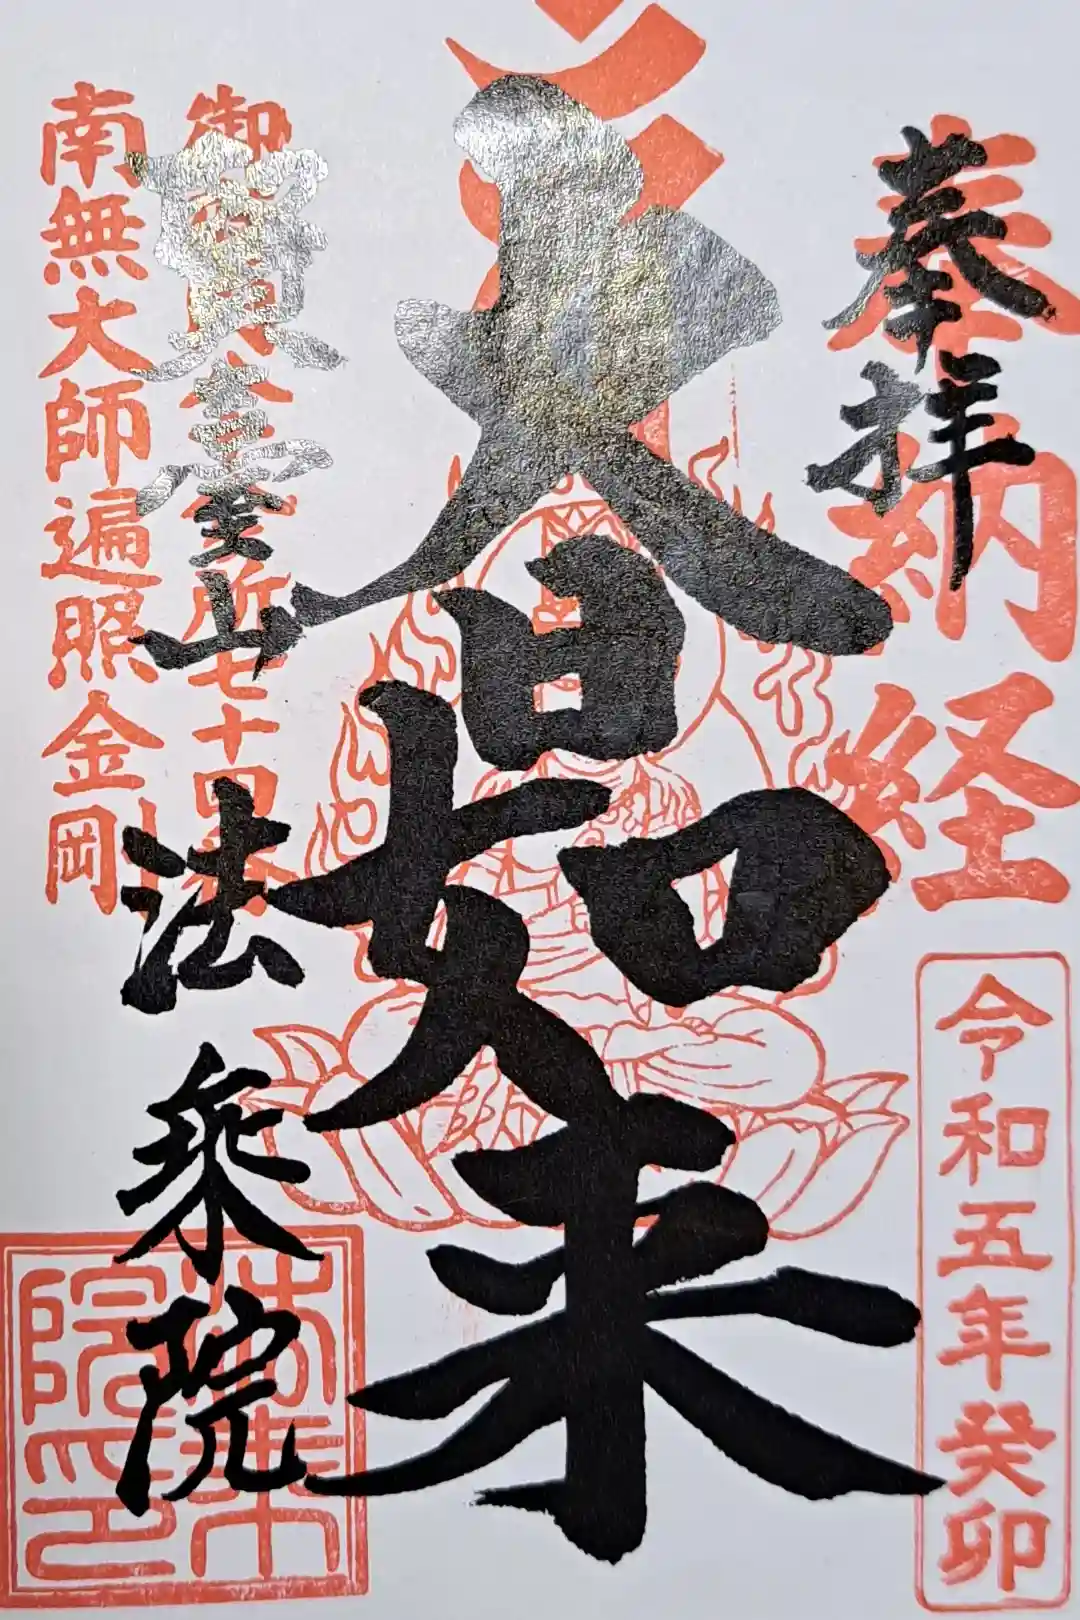 奉納経
奉拝
令和五年癸卯
大日如来
御 所七十四番
賢臺山
法乗院
南無大師遍照金岡
法乗院印